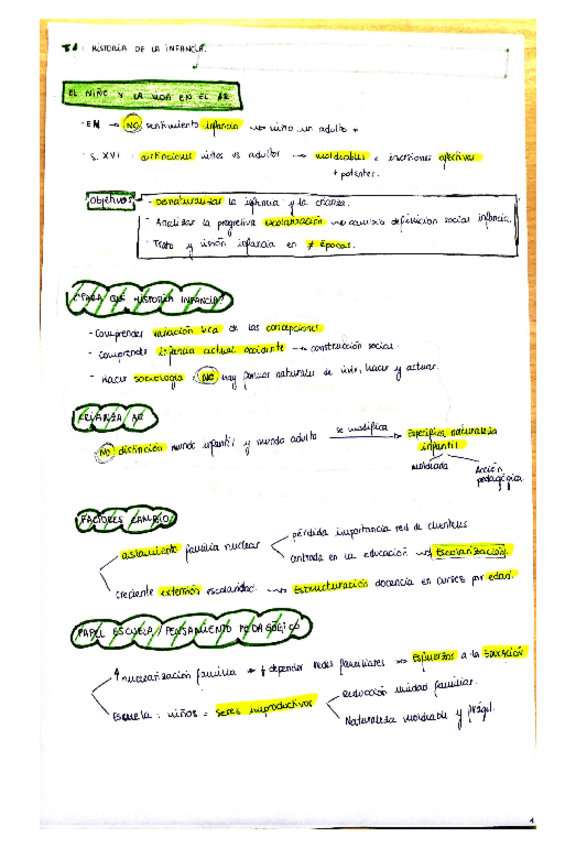 T1: HISTORIA DE LA INFANCIA.
EL NIÑO Y LA VIDA EN EL AR
- EM → NO sentimiento infancia → niño un adulto +
- S. XVI: distinciones niños vs adultos → moldeables e inversiones afectivas
+ potentes.
Objetivos
- Desnaturalizar la infancia y la crianza.
- Analizar la progresiva escolarización → cambia definición social infancia.
- Trato y visión infancia en ≠ épocas.
¿PARA QUÉ HISTORIA INFANCIA?
- Comprender variación hca de las concepciones
- Comprender infancia actual occidente → construcción social.
- Hacer sociología: NO hay formas naturales de vivir, hacer y actuar.
CRIANZA AR
NO distinción mundo infantil y mundo adulto se modifica → Específica naturaleza
infantil
moldearla
Acción
pedagógica.
FACTORES CAMBIO
aislamiento familia nuclear
pérdida importancia red de clientelas
centrada en la educación → Escolarización.
creciente extensión escolaridad. → Estructuración docencia en cursos por edad.
PAPEL ESCUELA / PENSAMIENTO PEDAGÓGICO
↑ nuclearización familia → ↓ depender redes familiares → Esfuerzos a la Educación
Escuela: niños = seres improductivos
Reducción unidad familiar.
Naturaleza moldeable y frágil.
1